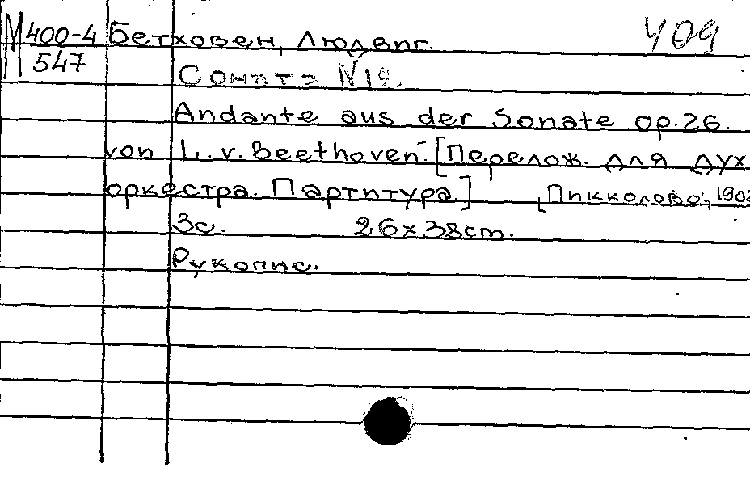 М 400-4 Бетховен, Людвиг. 409
547
Соната №12.
Andante aus der Sonate op. 26.
von L. v. Beethoven. [Перелож. для дух
оркестра. Партитура.] [Пикколово,
3с. 26х38cm.
Рукопис.